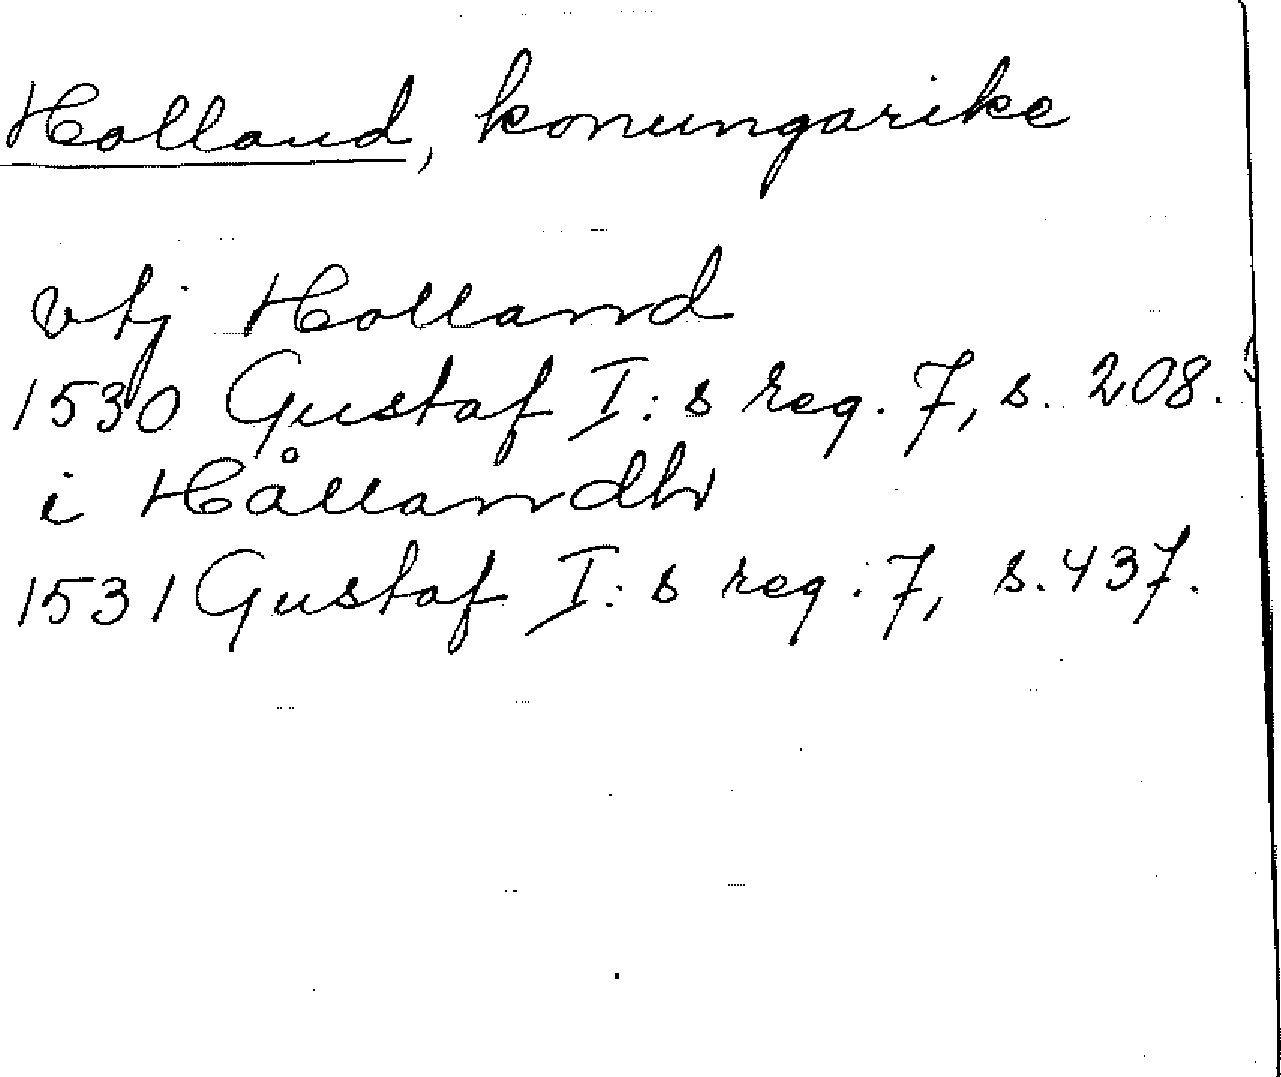 Holland, konungarike
vtj Holland
1530 Gustaf I:s reg. 7, s. 208.
i Hållandh
1531 Gustaf I:s reg. 7, s. 437.